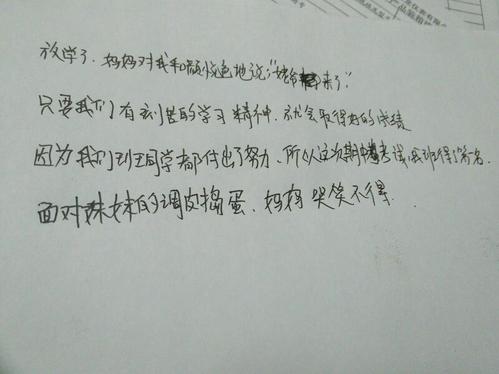 放学了，妈妈对我和颜悦色地说："姥爷来了"
只要我们有刻苦的学习精种，就会取得好的成绩
因为我们班同学都付出了努力、所以这次期中考试，我班得了第一名
面对妹妹的调皮捣蛋、妈妈哭笑不得.